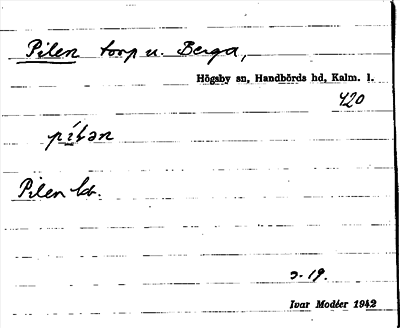 Pilen torp u. Berga,
Högsby sn, Handbörds hd, Kalm. l.
420
Pilen kb.
Ivar Modéer 1942